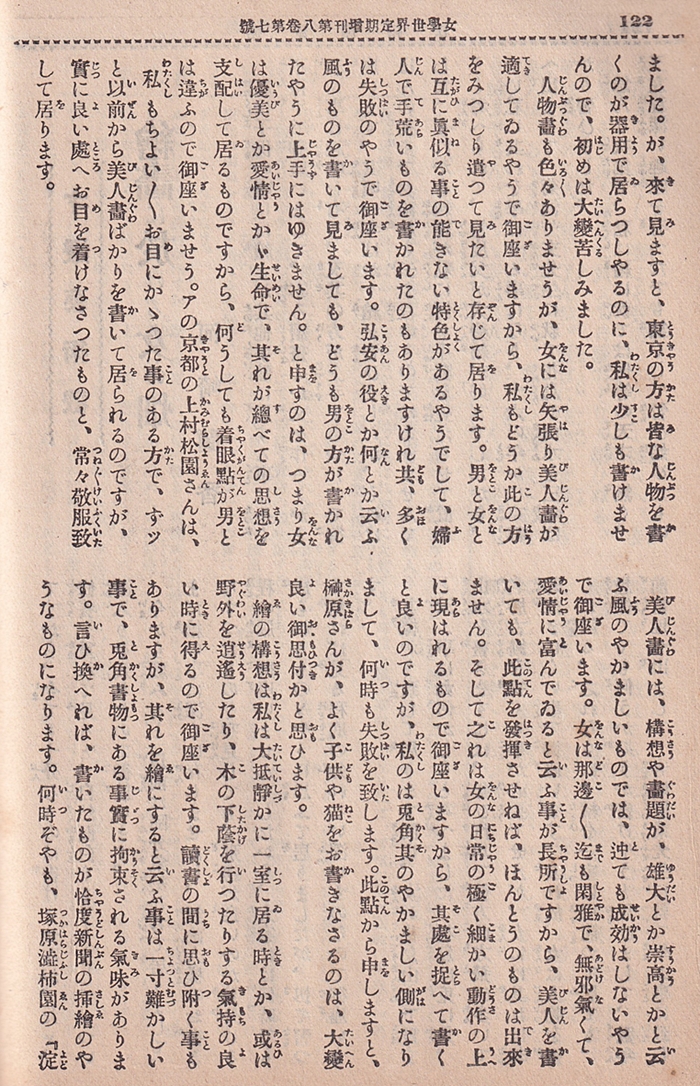 122
女學世界定期增刊第八卷第七號
ました。が、來て見ますと、東京の方は皆な人物を書
くのが器用で居らつしやるのに、私は少しも書けませ
んので、初めは大變苦しみました。
人物畫も色々ありませうが、女には矢張り美人畫が
適してゐるやうで御座いますから、私もどうか此の方
をみつしり遣つて見たいと存じて居ります。男と女と
は互に眞似る事の能きない特色があるやうでして、婦
人で手荒いものを書かれたのもありますけれ共、多く
は失敗のやうで御座います。弘安の役とか何とか云ふ
風のものを書いて見ましても、どうも男の方が書かれ
たやうに上手にはゆきません。と申すのは、つまり女
は優美とか愛情とかゞ生命で、其れが總べての思想を
支配して居るものですから、何うしても着眼點が男と
は違ふので御座いませう。アの京都の上村松園さんは、
私もちよい〱お目にかゝつた事のある方で、ずッ
と以前から美人畫ばかりを書いて居られるのですが、
實に良い處へお目を着けなさつたものと、常々敬服致
して居ります。
美人畫には、構想や畫題が、雄大とか崇高とかと云
ふ風のやかましいものでは、迚ても成効はしないやう
で御座います。女は那邊〱迄も閑雅で、無邪氣くて、
愛情に富んでゐると云ふ事が長所ですから、美人を書
いても、此點を發揮させねば、ほんとうのものは出來
ません。そして之れは女の日常の極く細かい動作の上
に現はれるもので御座いますから、其處を捉へて書く
と良いのですが、私のは兎角其のやかましい側になり
まして、何時も失敗を致します。此點から申しますと、
榊原さんが、よく子供や猫をお書きなさるのは、大變
良い御思付かと思ひます。
繪の構想は私は大抵靜かに一室に居る時とか、或は
野外を逍遙したり、木の下蔭を行いつたりする氣持の良
い時に得るので御座います。讀書の間に思ひ附く事も
ありますが、其れを繪にすると云ふ事は一寸難かしい
事で、兎角書物にある事實に拘束される氣味がありま
す。言ひ換へれば、書いたものが恰度新聞の揷繪のや
うなものになります。何時ぞやも、塚原澁柿園の『淀